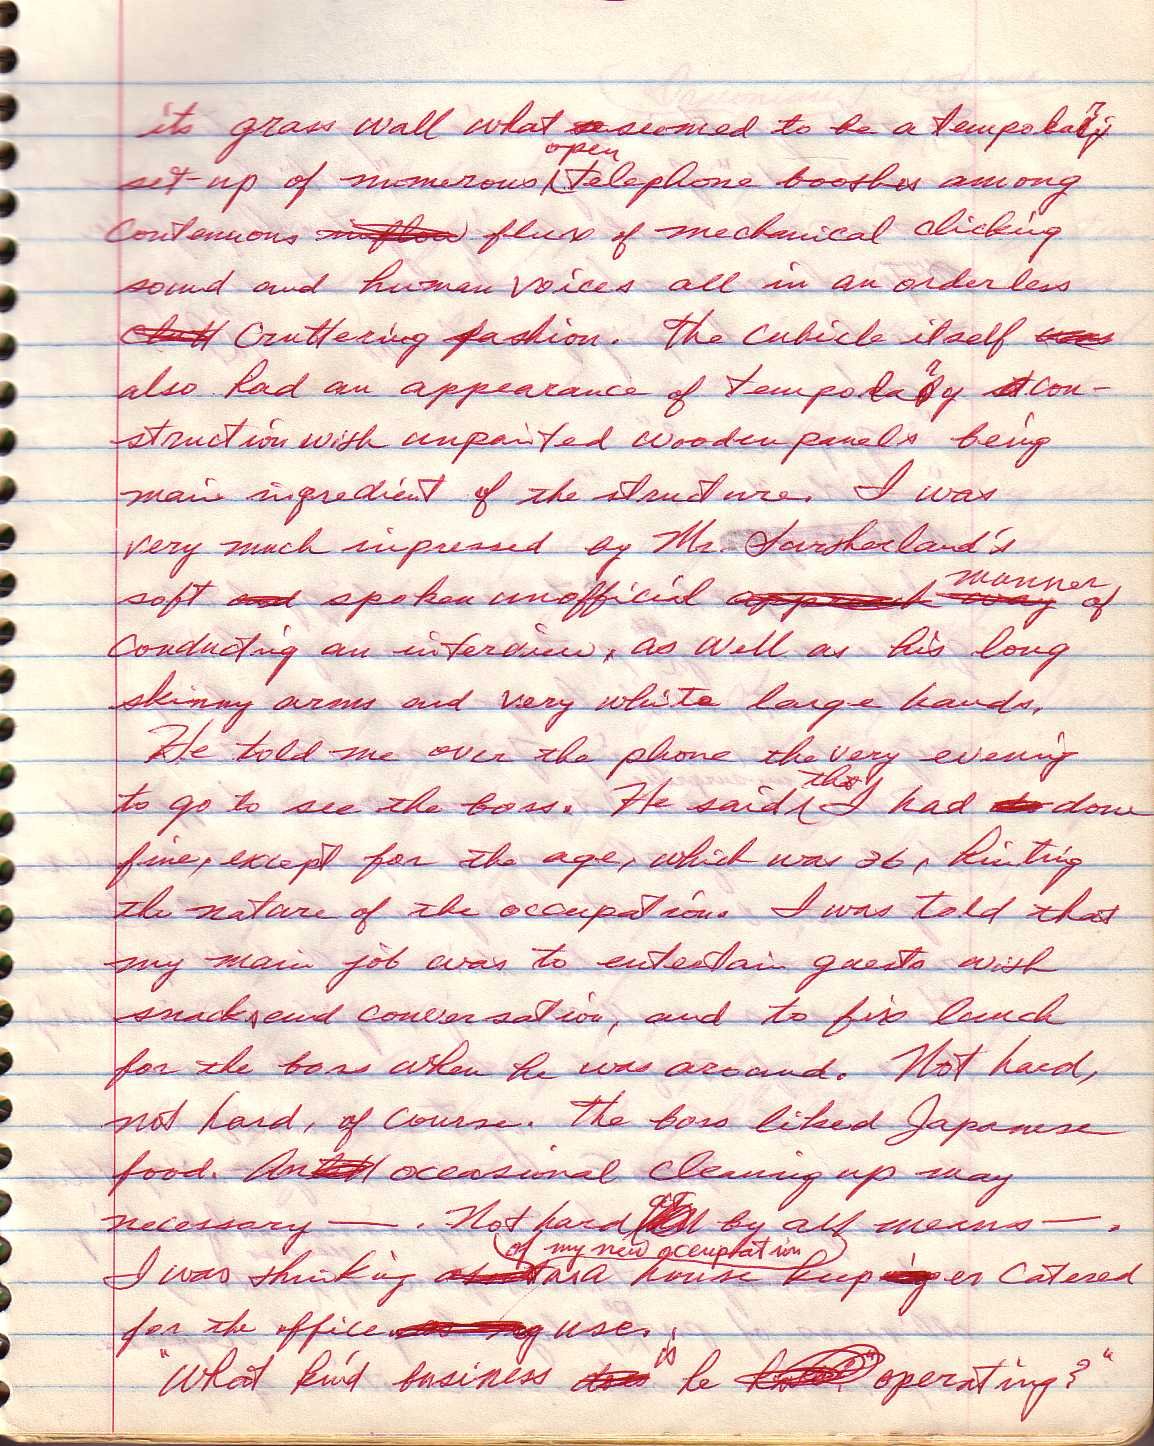 its grass wall what seemed to be a temporary
set-up of numerous open telephone booshes among
contenuous inflow flux of mechanical clicking
sound and human voices all in an orderless
cruttering fashion. The cubicle itself was
also had an appearance of temporary con-
struction wish unpainted wooden panels being
main ingredient of the structure. I was
very much inpressed by Mr. Sursherland's
soft and spoken unofficial approach way manner of
conducting an interview, as well as his long
skinny arms and very white large hands.
He told me over the phone the very evening
to go to see the boss. He said that I had done
fine, except for the age, which was 26, hinting
the nature of the occupation. I was told that
my main job was to entertain guests wish
snacks and conversation, and to fix lunch
for the boss when he was around. Not hard,
not hard, of course. The boss liked Japanese
food. An occasional cleaning up may
necessary —. Not hard by all means —.
I was thinking of my new occupation as a house keeper catered
for the office use.
"What kind business does is he operating?"